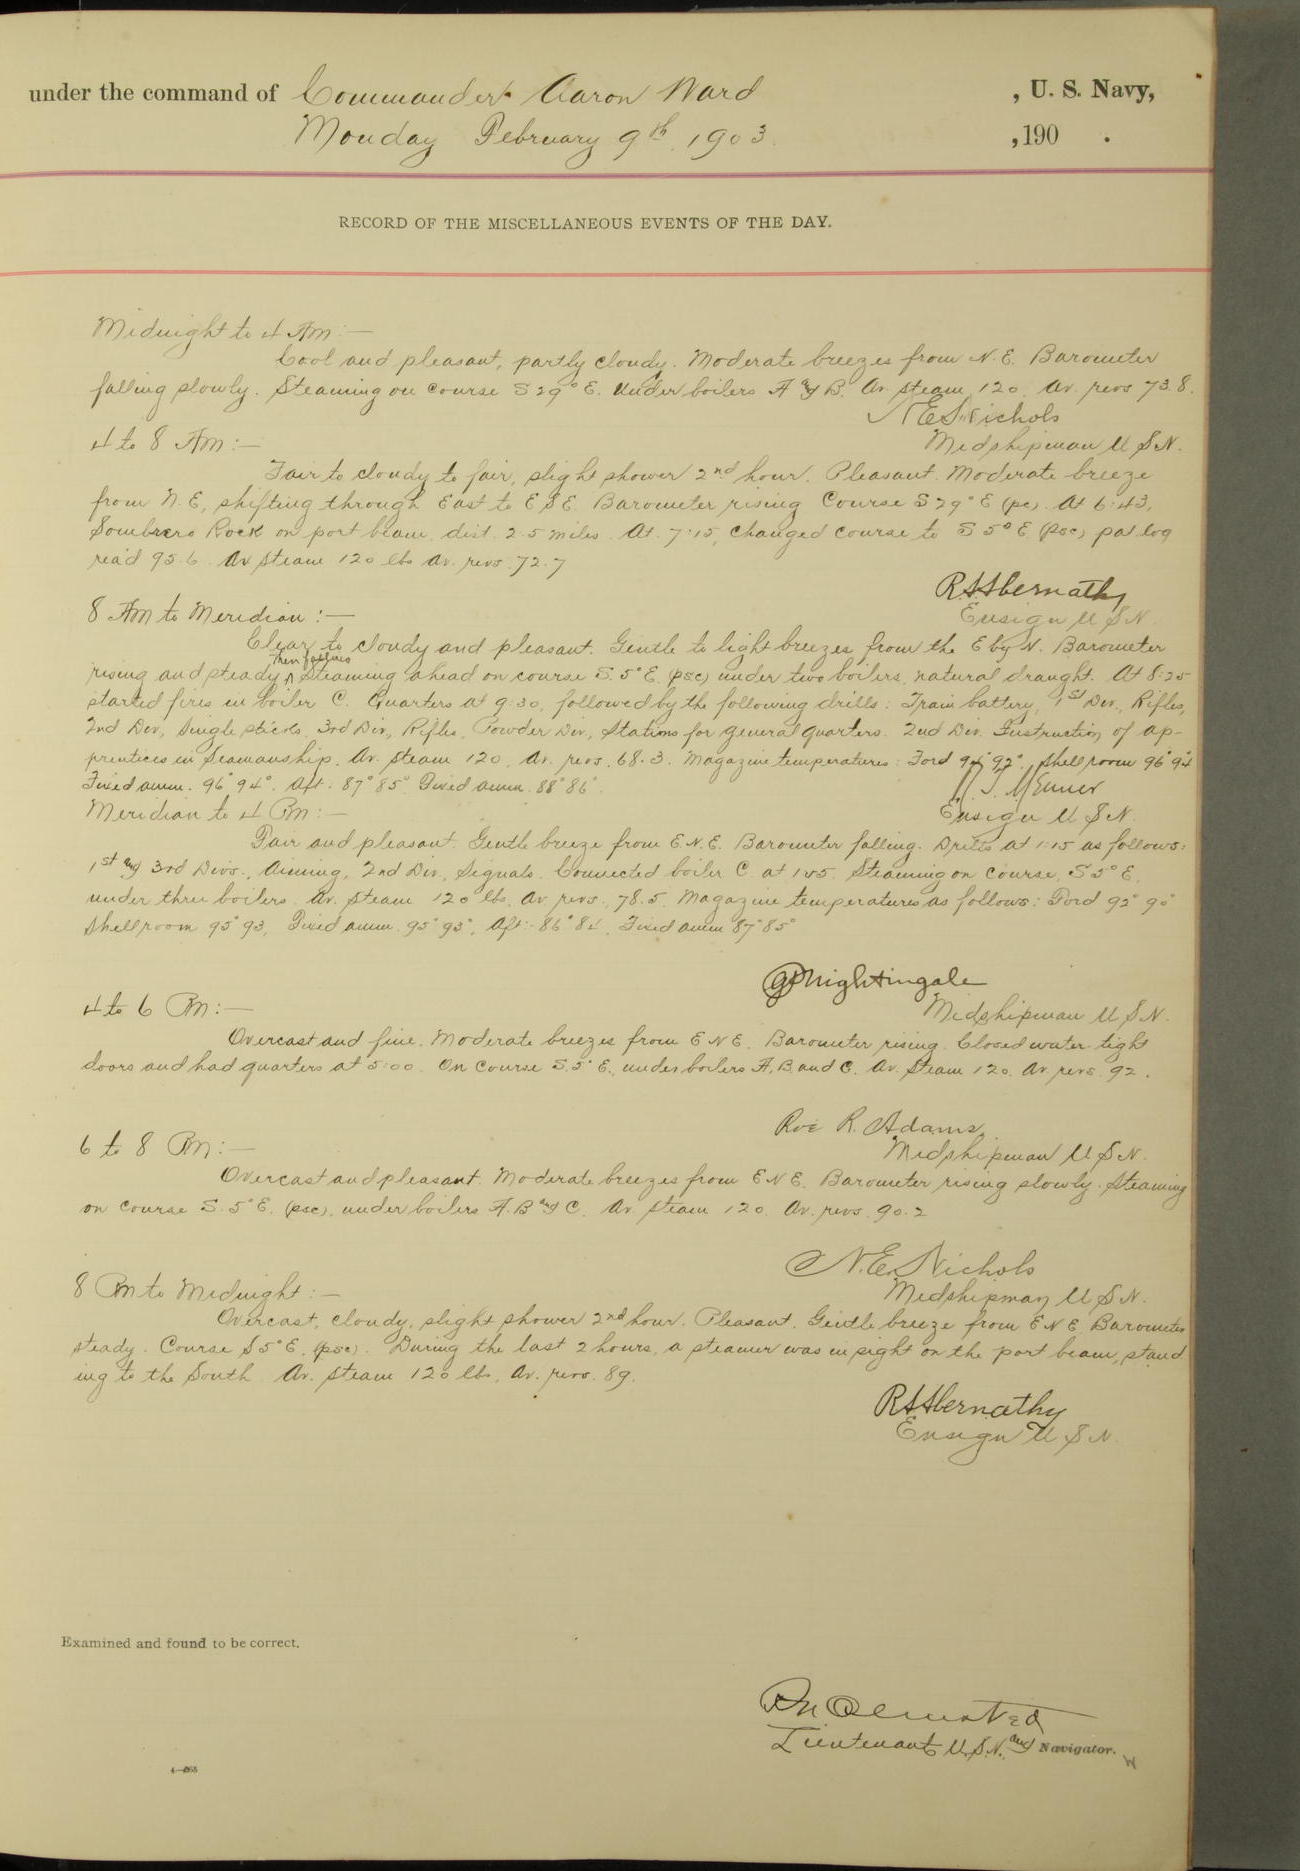 under the command of Commander Aaron Ward , U. S. Navy,
Monday February 9th, 1903. ,190 .
RECORD OF THE MISCELLANEOUS EVENTS OF THE DAY.
Midnight to 4 AM:—
Cool and pleasant, partly cloudy. Moderate breezes from N.E. Barometer
falling slowly. Steaming on course S 29° E. Under boilers A and B. Av. steam 120. Av. revs 73.8.
N E Nichols
4 to 8 AM:—
Midshipman U S N.
Fair to cloudy to fair, slight shower 2nd hour. Pleasant. Moderate breeze
from N.E, shifting through East to E S E. Barometer rising Course S 29° E (psc). At 6:43,
Sombrero Rock on port beam, dist. 2.5 miles. At 7:15, changed course to S 5° E (psc) pat log
read 95.6. Av steam 120 lbs Av. revs. 72.7
R S Abernathy
8 AM to Meridian:—
Ensign U S N.
Clear to cloudy and pleasant. Gentle to light breezes from the E by N. Barometer
rising and steady then falling Steaming ahead on course S. 5° E. (psc) under two boilers, natural draught. At 8:25
started fires in boiler C. Quarters at 9:30, followed by the following drills: Train battery, 1st Div., Rifles,
2nd Div, Single sticks, 3rd Div, Rifles, Powder Div, Stations for general quarters. 2nd Div. Instruction of ap-
prentices in Seamanship. Av. steam 120. Av. revs. 68.3. Magazine temperatures: Ford 94° 92°. Shellroom 96° 94
Fixed amm. 96° 94°. Aft: 87° 85° Fixed amm. 88° 86°.
Meridian to 4 PM:—
Ensign U S N.
Fair and pleasant. Gentle breeze from E.N.E. Barometer falling. Drills at 1:15 as follows:
1st and 3rd Divs., Aiming, 2nd Div, Signals. Connected boiler C. at 1:05. Steaming on course, S 5° E.
under three boilers. Av. steam 120 lbs. Av revs. 78.5. Magazine temperatures as follows: Ford 92° 90°
Shellroom 95° 93, Fixed amm. 95° 93°, Aft:- 86° 84, Fixed amm 87° 85°
Nightingale
4 to 6 PM:—
Midshipman U S N.
Overcast and fine. Moderate breezes from E N E. Barometer rising. Closed water-tight
doors and had quarters at 5:00. On course S.5° E., under boilers A, B and C. Av. steam 120. Av. revs. 92.
Roe R. Adams,
6 to 8 PM:—
Midshipman U S N.
Overcast and pleasant. Moderate breezes from E N E. Barometer rising slowly. Steaming
on course S. 5° E. (psc), under boilers A. B and C. Av. steam 120. Av. revs. 90.2
N. E. Nichols
8 PM to Midnight:—
Midshipman U S N.
Overcast, cloudy, slight shower 2nd hour. Pleasant. Gentle breeze from E N E Barometer
steady. Course S 5° E. (psc). During the last 2 hours, a steamer was in sight on the port beam, stand
ing to the South. Av. steam 120 lbs. Av. revs. 89.
R S Abernathy
Ensign U S N.
Examined and found to be correct.
Olmsted
Lieutenant U.S.N. and Navigator.